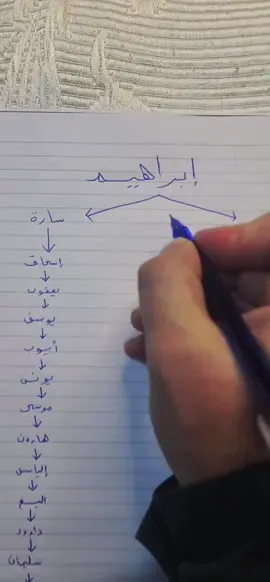 إبراهيم
سارة
إسحاق
يعقوب
يوسف
أيوب
يونس
موسى
هارون
إلياس
اليسع
داوود
سليمان